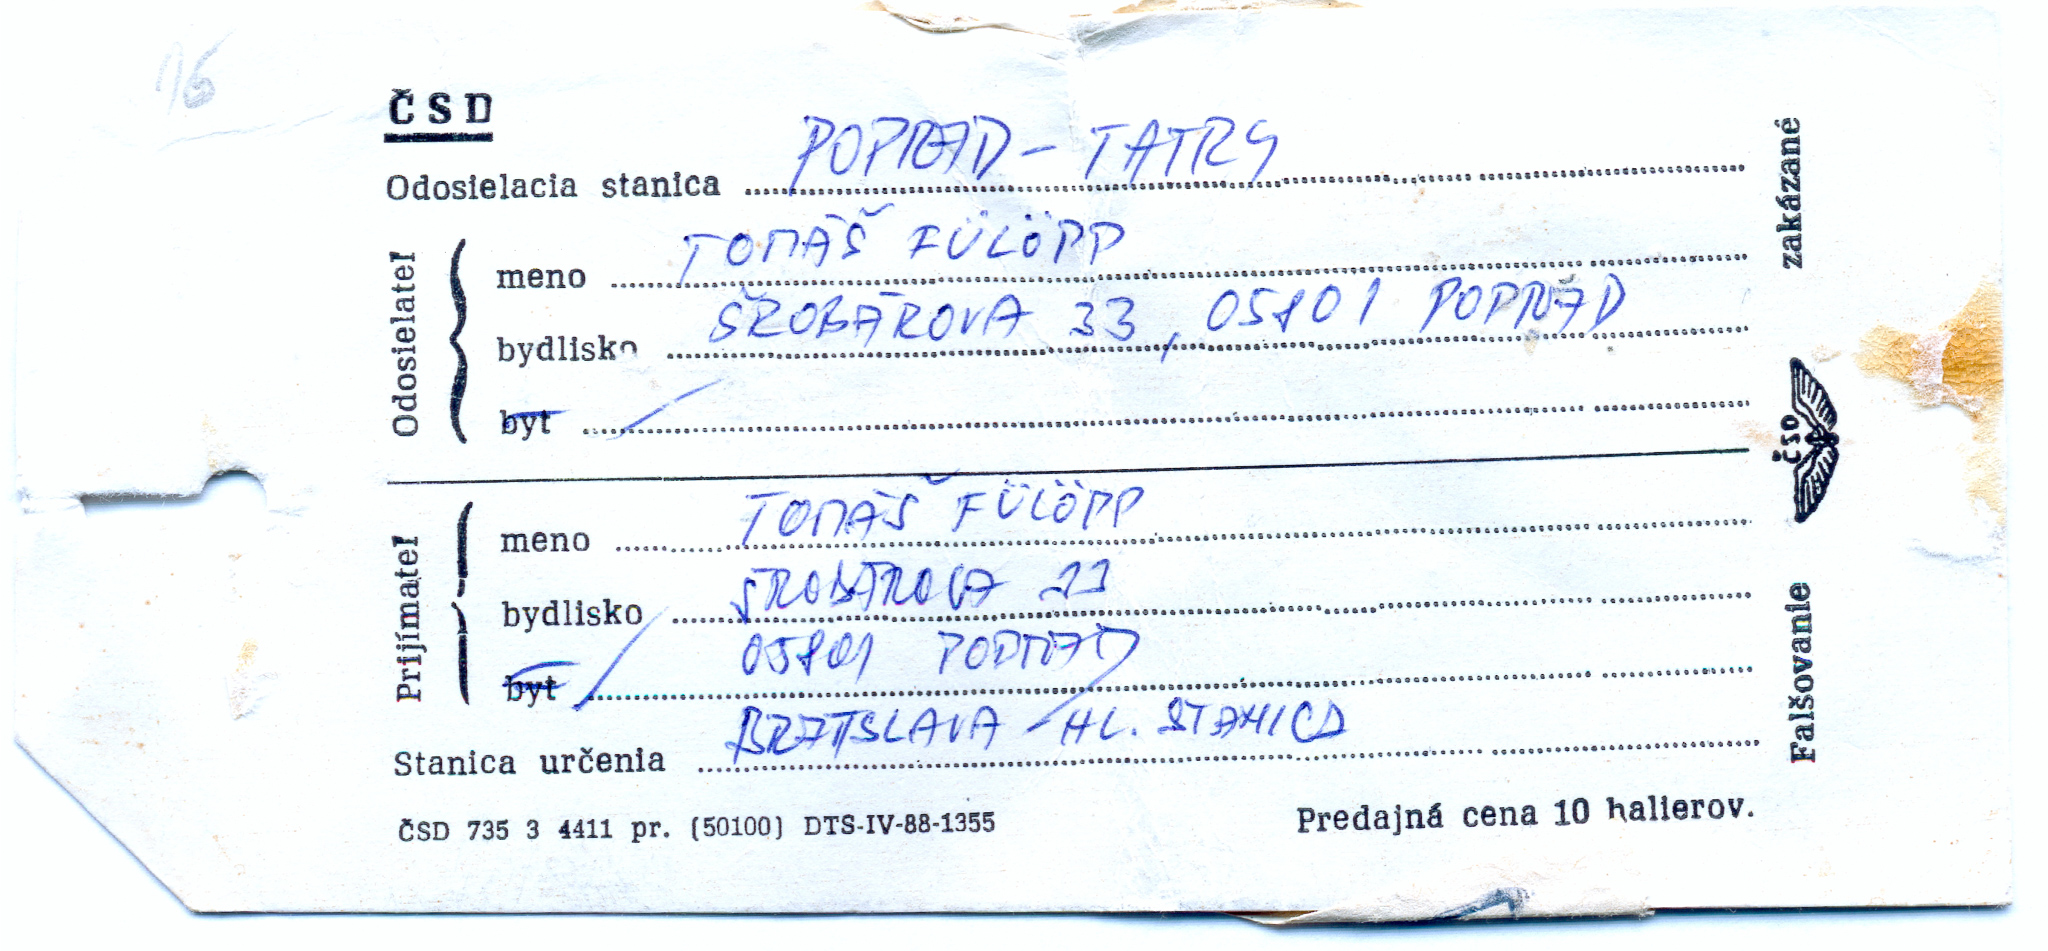 16
ČSD
Odosielacia stanica POPRAD - TATRY
Odosielateľ
meno TOMÁŠ FÜLÖPP
bydlisko ŠROBÁROVA 33, 05801 POPRAD
byt
Prijímateľ
meno TOMÁŠ FÜLÖPP
bydlisko ŠROBÁROVA 33
05801 POPRAD
byt
Stanica určenia BRATISLAVA - HL. STANICA
ČSD 735 3 4411 pr. (50100) DTS-IV-88-1355
Predajná cena 10 halierov.
Falšovanie ČSD zakázané